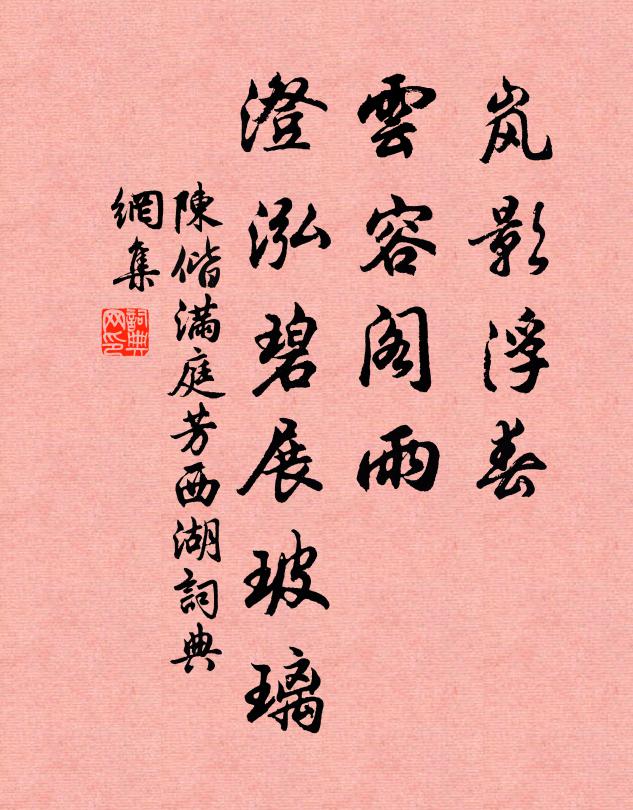 岚影浮春
雲容阁雨
澄泓碧展玻璃
陳偕满庭芳西湖詞典
網集
詞典
网印